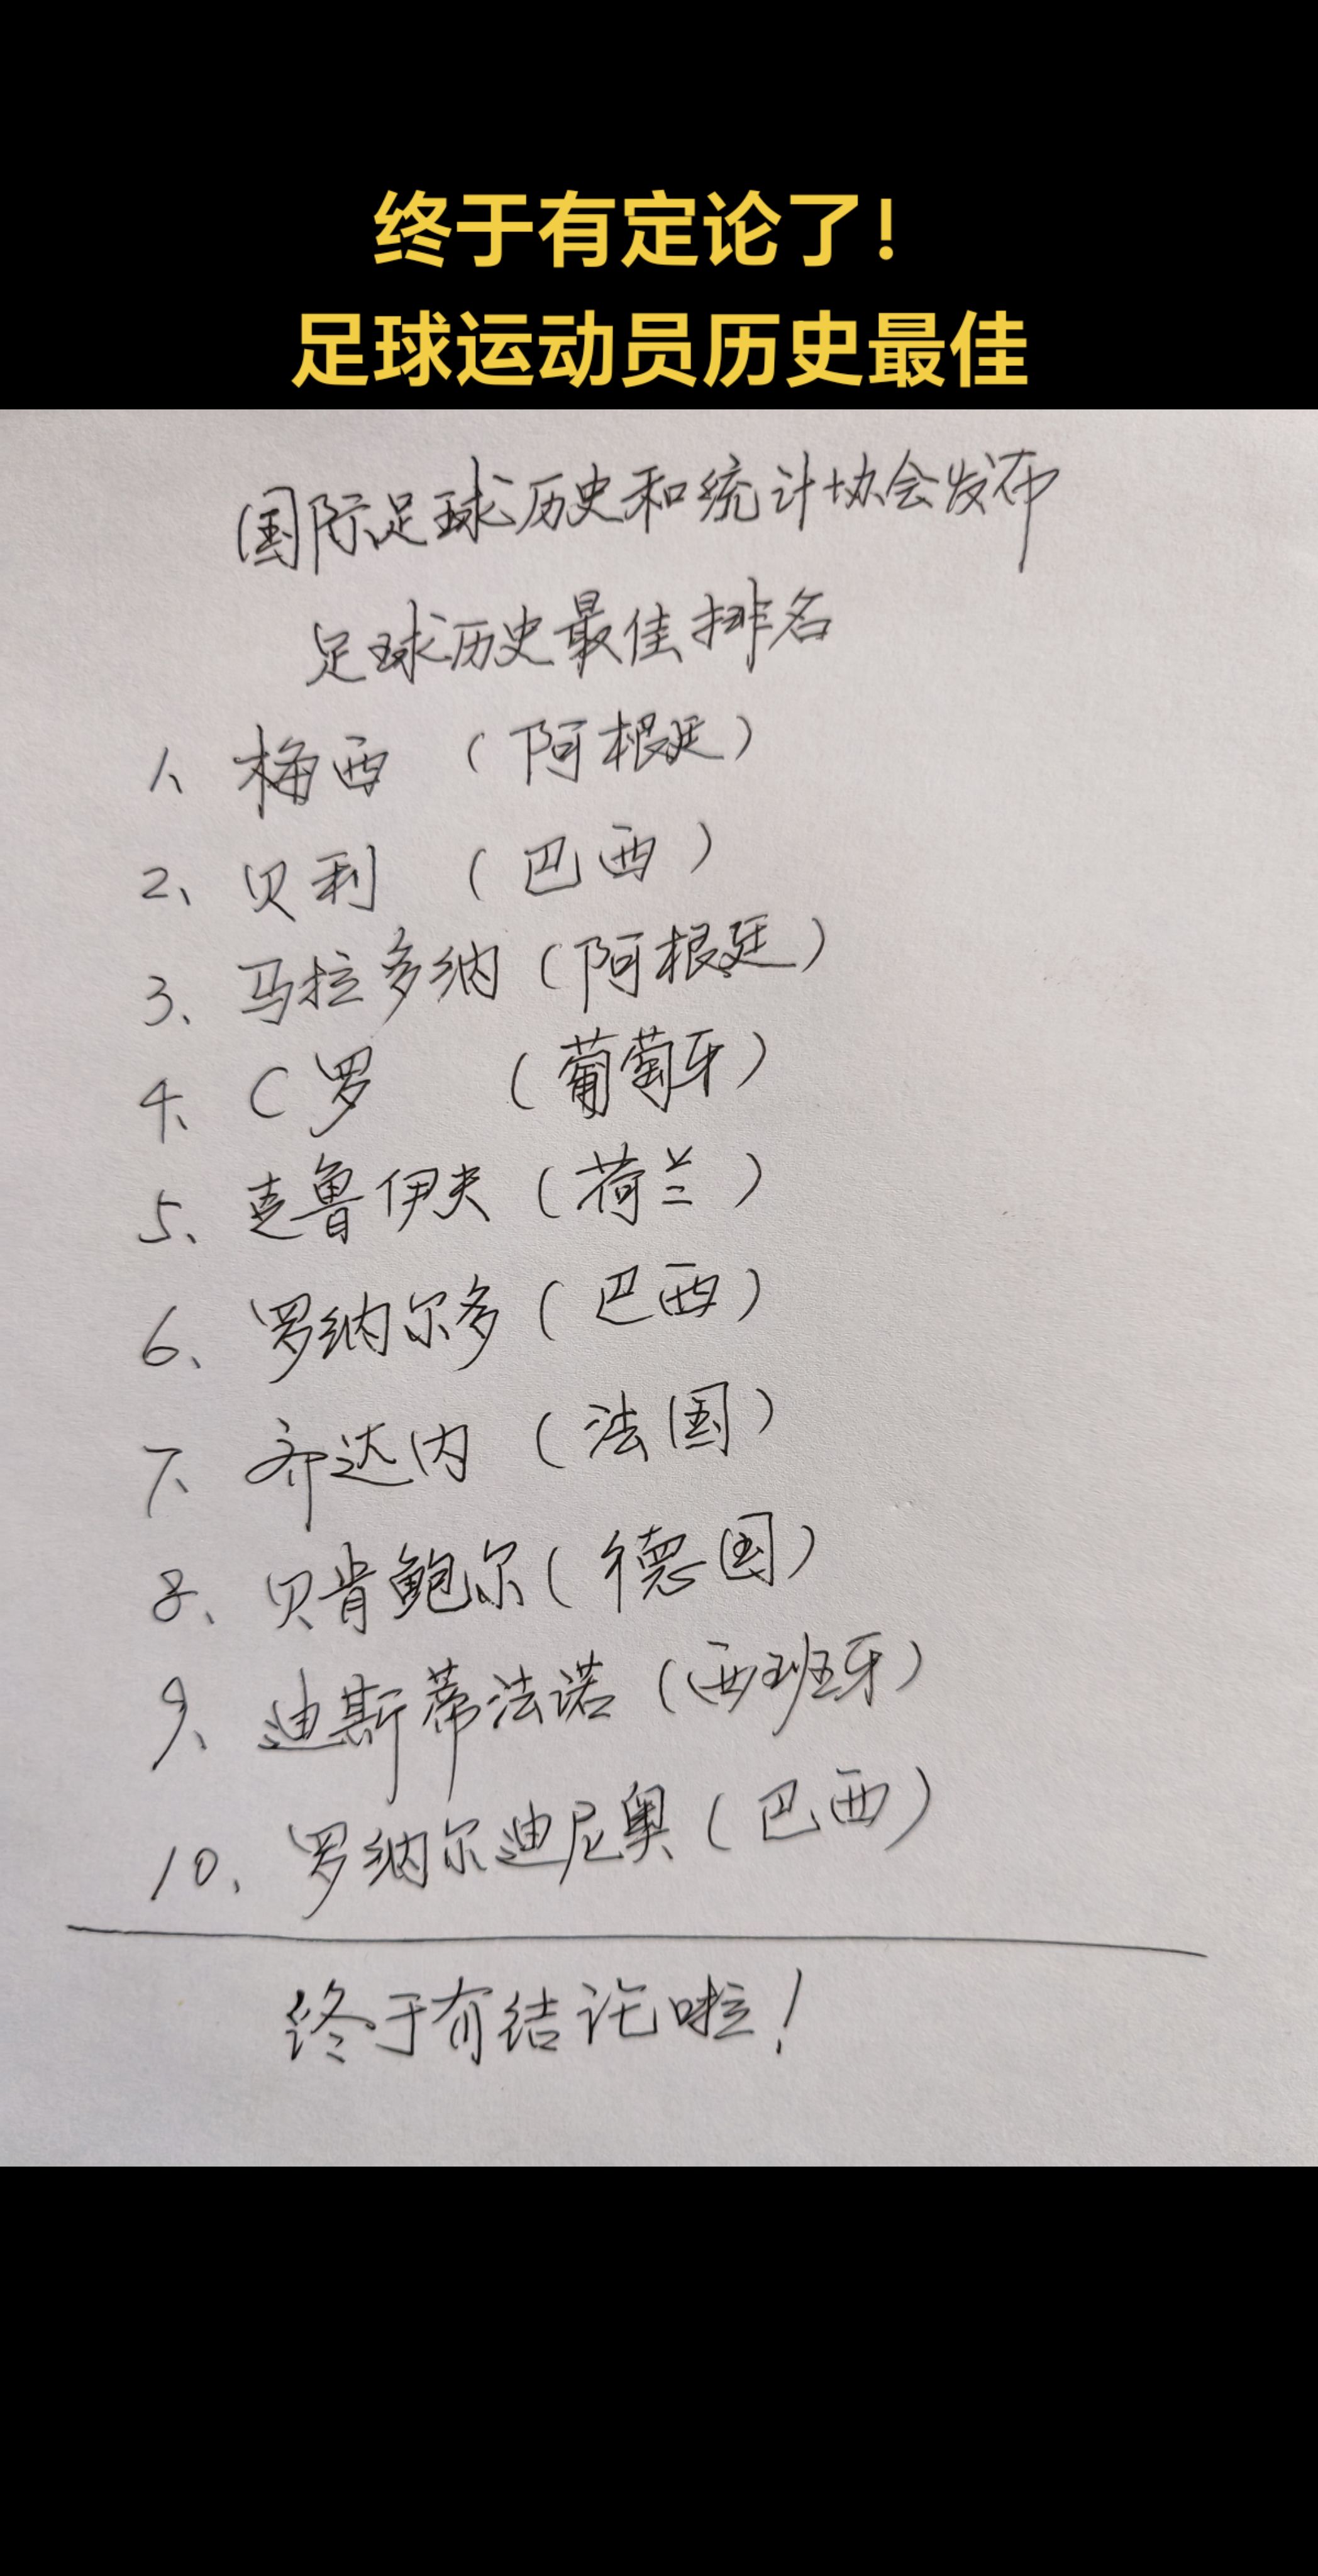 终于有定论了！
足球运动员历史最佳
国际足球历史和统计协会发布
足球历史最佳排名
1、梅西（阿根廷）
2、贝利（巴西）
3、马拉多纳（阿根廷）
4、C罗（葡萄牙）
5、克鲁伊夫（荷兰）
6、罗纳尔多（巴西）
7、齐达内（法国）
8、贝肯鲍尔（德国）
9、迪斯蒂法诺（西班牙）
10、罗纳尔迪尼奥（巴西）
终于有结论啦！